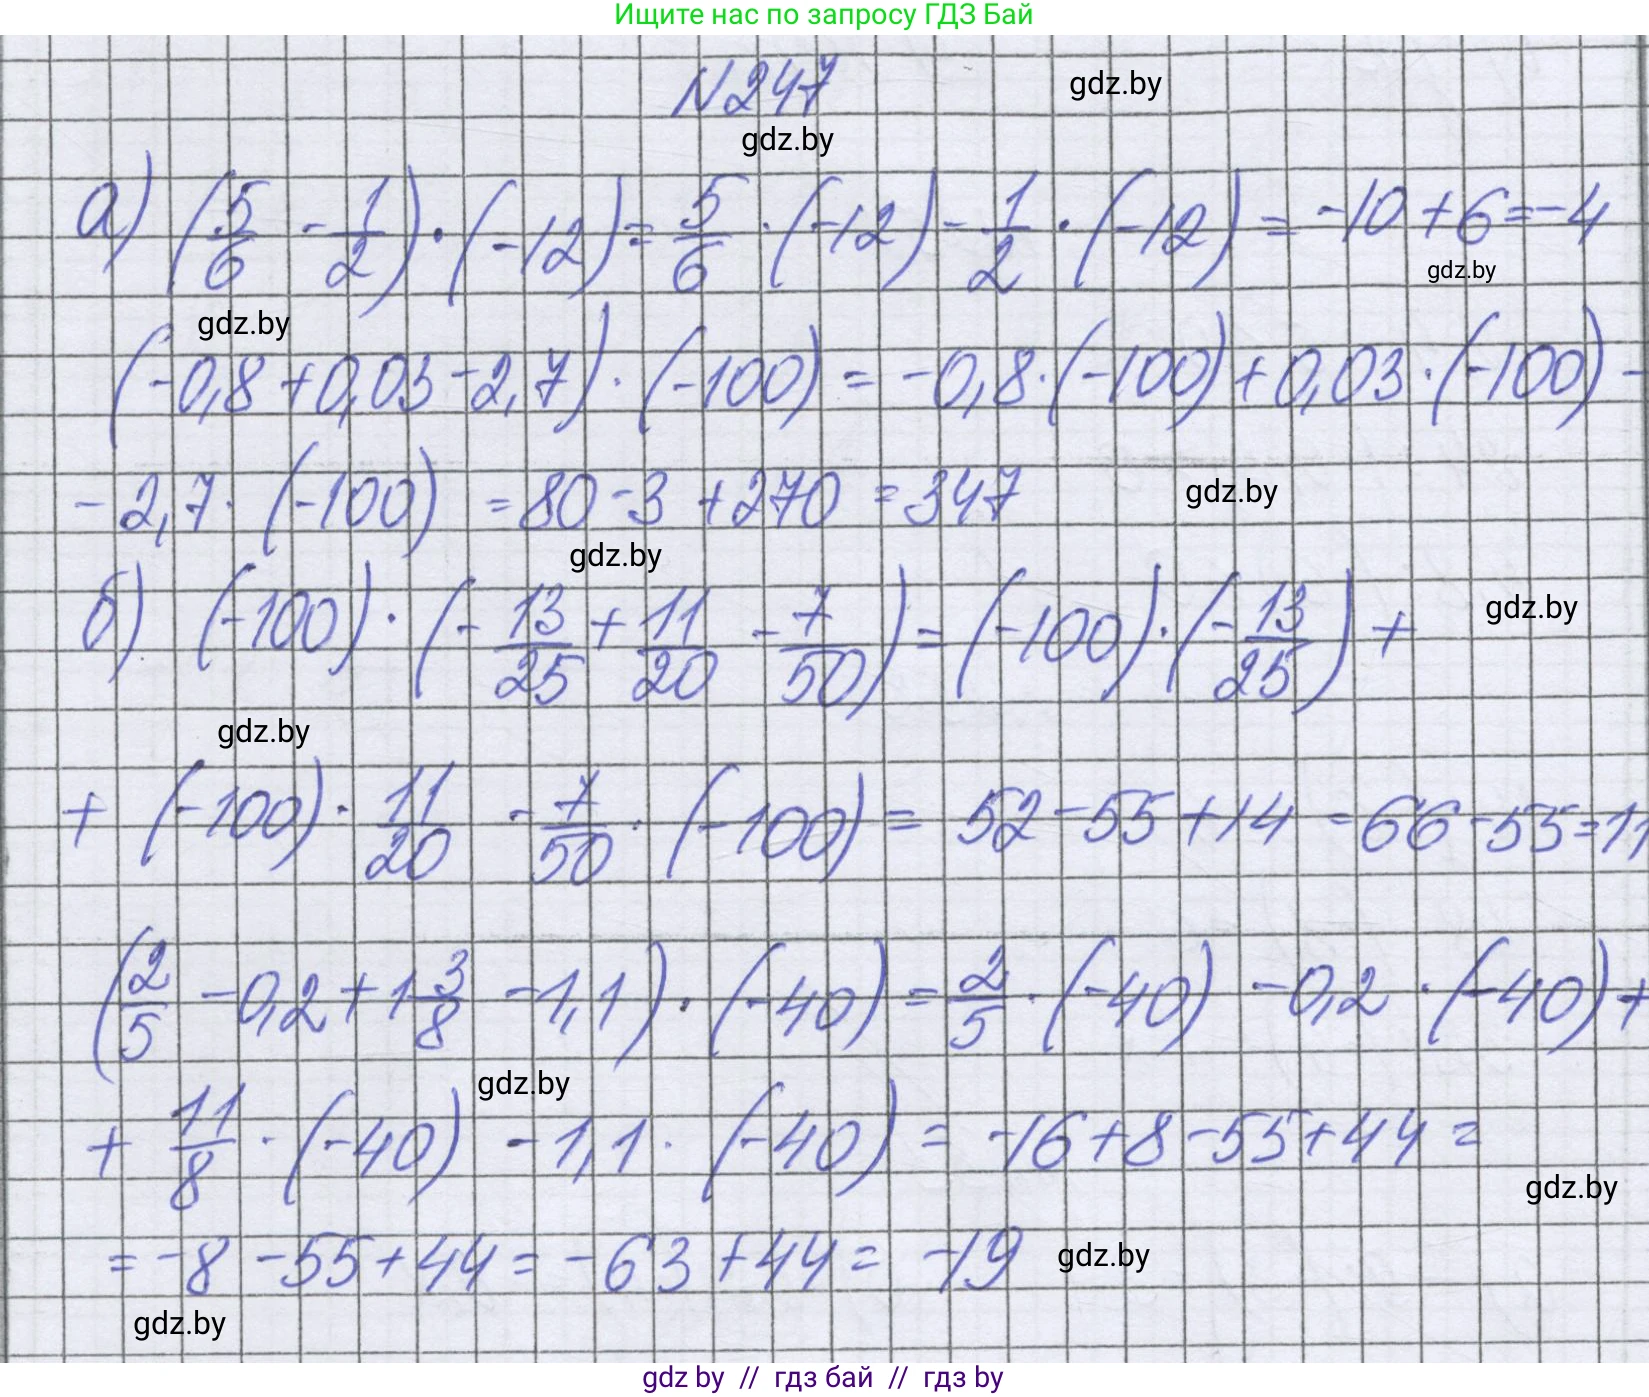 Ищите нас по запросу ГДЗ Бай
N247
gdz.by
gdz.by
а) (5/6 - 1/2) · (-12) = 5/6 · (-12) - 1/2 · (-12) = -10 + 6 = -4
gdz.by
gdz.by
(-0,8 + 0,03 - 2,7) · (-100) = -0,8 · (-100) + 0,03 · (-100) -
- 2,7 · (-100) = 80 - 3 + 270 = 347
gdz.by
gdz.by
б) (-100) · (- 13/25 + 11/20 - 7/50) = (-100) · (- 13/25) +
gdz.by
gdz.by
+ (-100) · 11/20 - 7/50 · (-100) = 52 - 55 + 14 = 66 - 55 = 11
(2/5 - 0,2 + 1 3/8 - 1,1) · (-40) = 2/5 · (-40) - 0,2 · (-40) +
gdz.by
+ 11/8 · (-40) - 1,1 · (-40) = -16 + 8 - 55 + 44 =
gdz.by
= -8 - 55 + 44 = -63 + 44 = -19
gdz.by
gdz.by
gdz by // гдз бай // гдз by